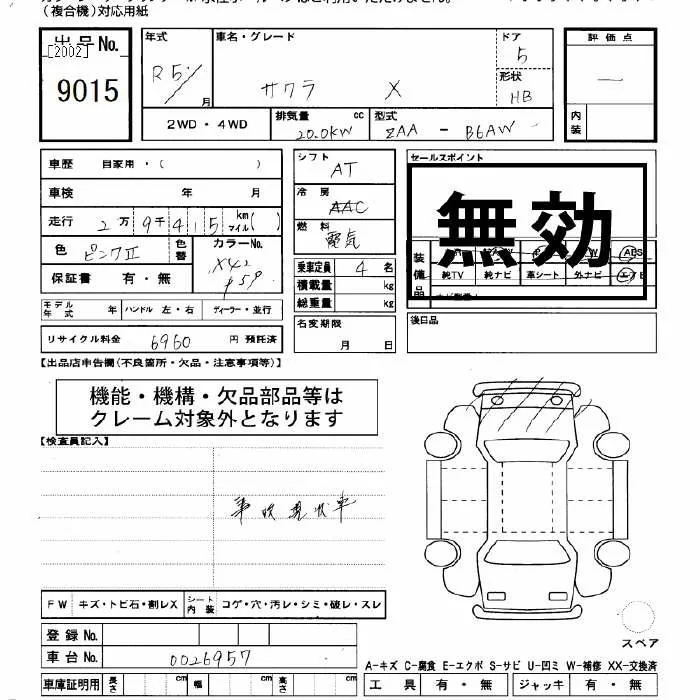 （複合機）対応用紙
出品No. [2002] 9015
年式 R5/ 月
車名・グレード サクラ X
ドア 5
形状 HB
評価点 —
内装
2WD・4WD
排気量 cc 20.0KW
型式 ZAA - B6AW
車歴 自家用・( )
車検 年 月
走行 2万9千415 km マイル( )
色 ピンクII 色替 カラーNo. XK2 ¥59
保証書 有・無
モデル年式 年 ハンドル 左・右 ディーラー・並行
リサイクル料金 6960 円 預託済
シフト AT
冷房 AAC
燃料 電気
乗車定員 4 名
積載量 kg
総重量 kg
名変期限 月 日
セールスポイント
無効
装備品
純TV 純ナビ 革シート 外ナビ エアB
後日品
【出品店申告欄(不良箇所・欠品・注意事項等)】
機能・機構・欠品部品等は
クレーム対象外となります
【検査員記入】
事故現状車
FW キズ・トビ石・割レX シート内装 コゲ・穴・汚レ・シミ・破レ・スレ
登録No.
車台No. 0026957
車庫証明用 長さ 幅 高さ
スペア
A-キズ C-腐食 E-エクボ S-サビ U-凹ミ W-補修 XX-交換済
工具 有・無 ジャッキ 有・無